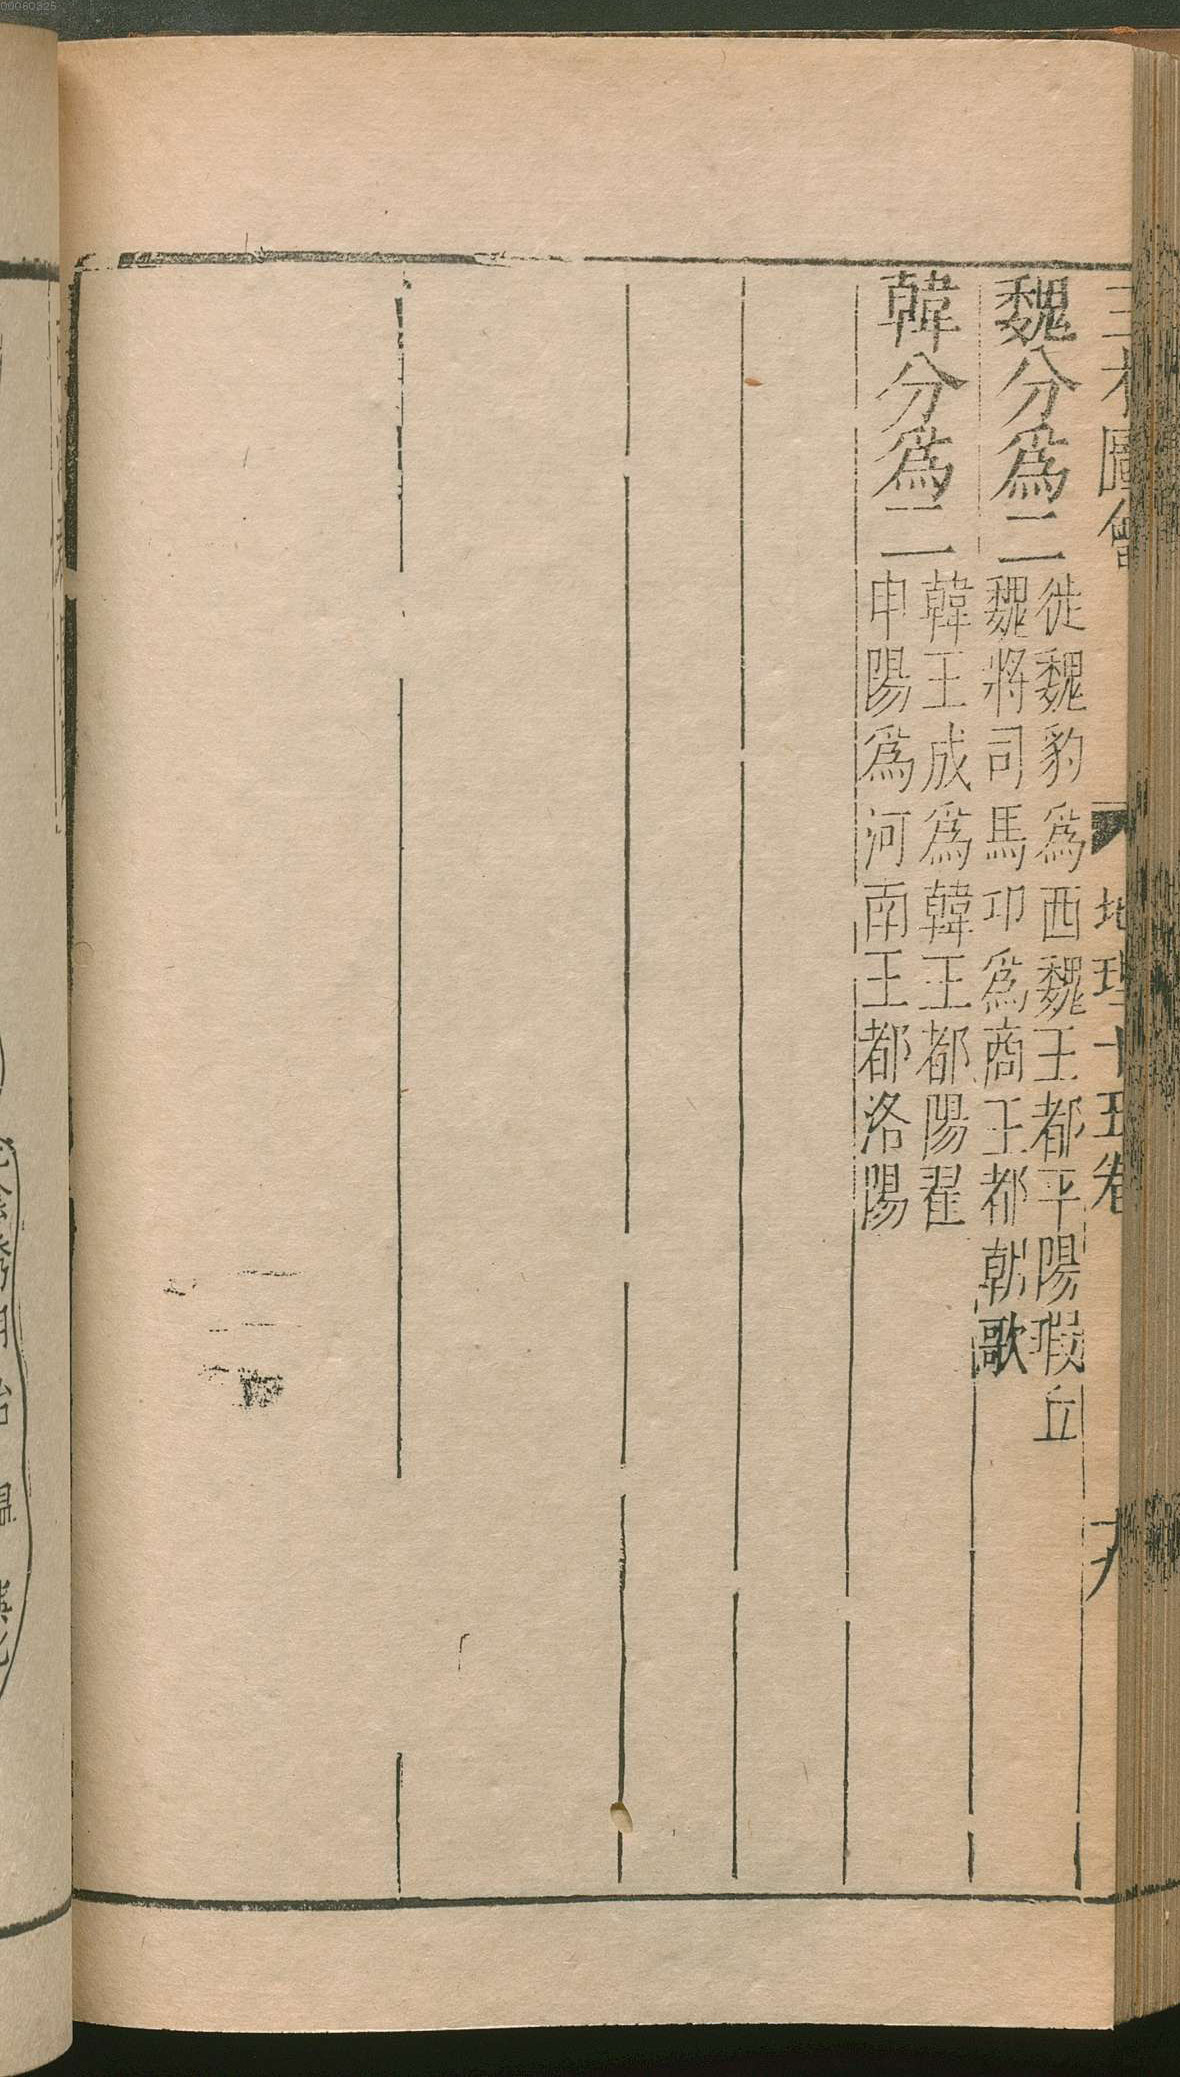 三才圖會 地理十五卷
魏分爲二 徙魏豹爲西魏王都平陽瑕丘
魏將司馬卬爲商王都朝歌
韓分爲二 韓王成爲韓王都陽翟
申陽爲河南王都洛陽
00060325